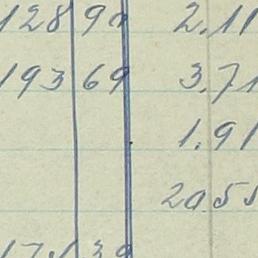 128 90 2.11
193 69 3.71
1.91
20.55